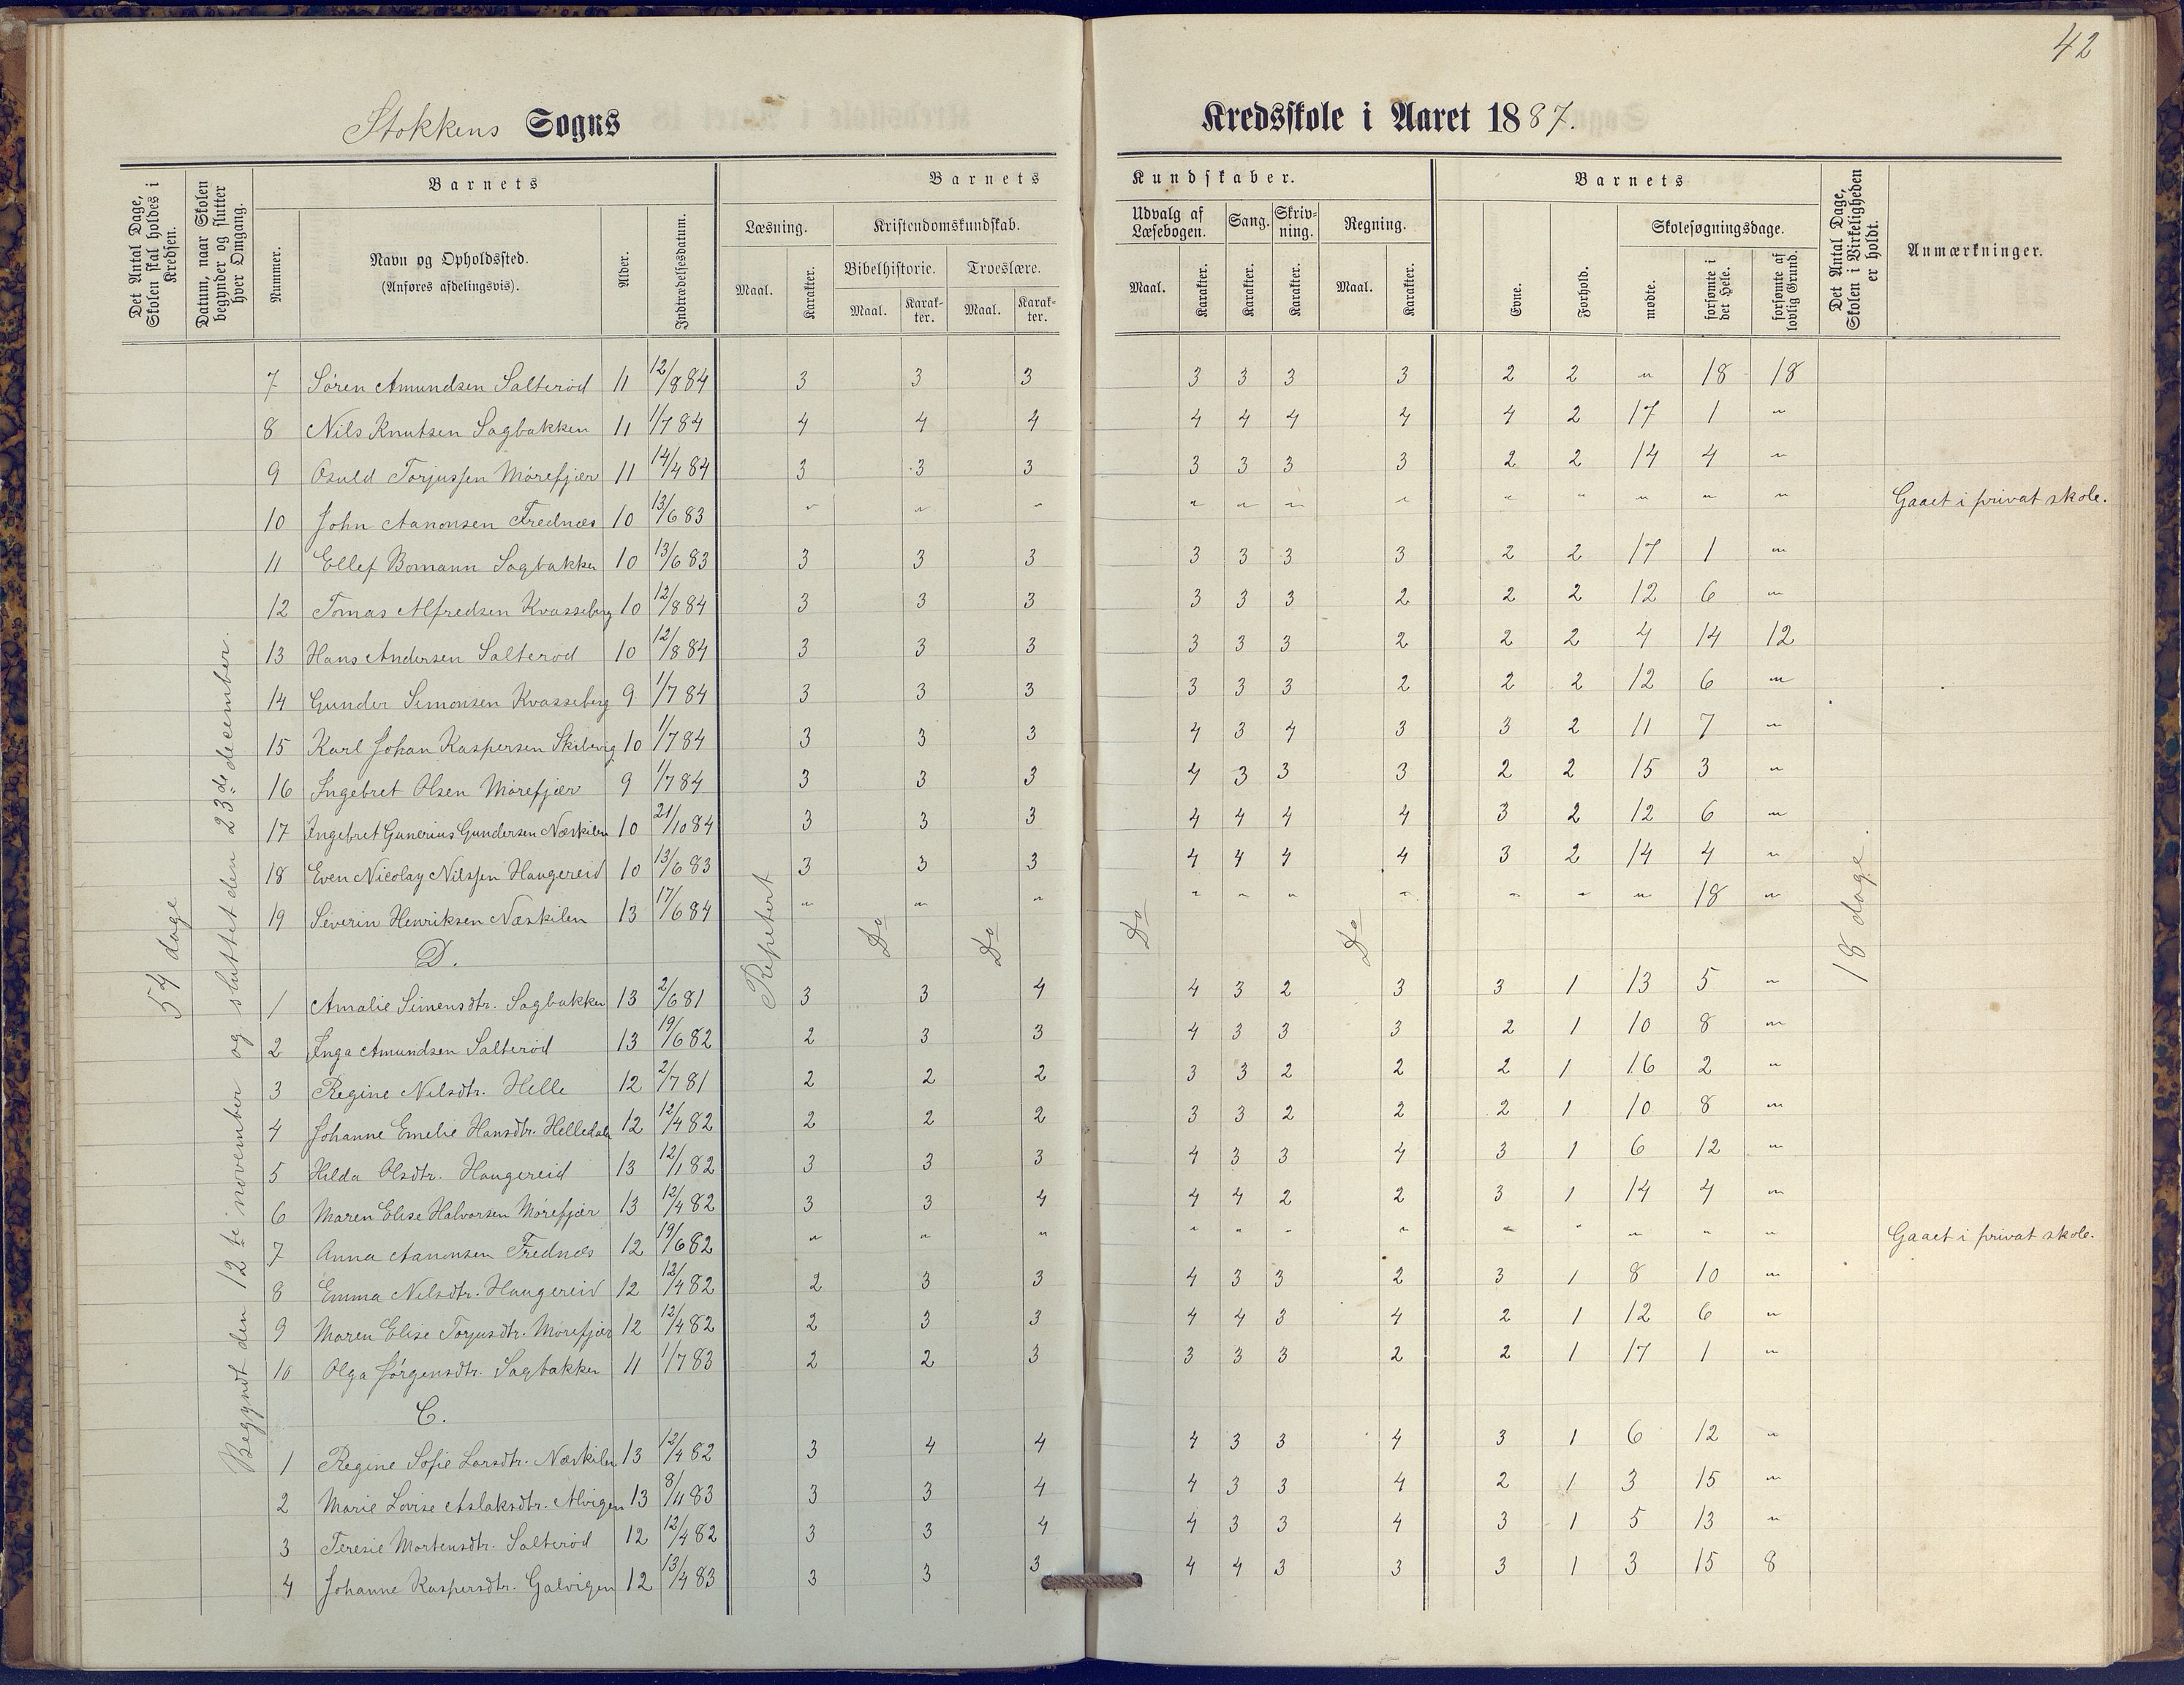 42
Stokkens Sogns Kredsskole i Aaret 1887.
Det Antal Dage, Skolen skal holdes i Kredsen.
Datum, naar Skolen begynder og slutter hver Omgang.
Barnets
Nummer.
Navn og Opholdssted.
(Anføres afdelingsvis).
Alder.
Indtrædelsesdatum.
Barnets Kundskaber.
Læsning.
Maal. Karakter.
Kristendomskundskab.
Bibelhistorie. Troeslære.
Maal. Karak-ter. Maal. Karak-ter.
Udvalg af Læsebogen.
Maal. Karakter.
Sang. Karakter.
Skriv-ning. Karakter.
Regning.
Maal. Karakter.
Barnets
Evne. Forhold.
Skolesøgningsdage.
mødte. forsømte i det Hele. forsømte af lovlig Grund.
Det Antal Dage, Skolen i Virkeligheden er holdt.
Anmærkninger.
54 dage
Begyndt den 12te november og sluttet den 23de december.
Repetert Do Do Do Do
18 dage.
7 Søren Amundsen Salterød 11 12/8 84 3 3 3 3 3 3 3 2 2 " 18 18
8 Nils Knutsen Sagbakken 11 1/7 84 4 4 4 4 4 4 4 4 2 17 1 "
9 Osuld Torjussen Mørefjær 11 14/4 84 3 3 3 3 3 3 3 2 2 14 4 "
10 John Aanonsen Frednæs 10 13/6 83 " " " " " " " " " " " " Gaaet i privat skole.
11 Ellef Bomann Sagbakken 10 13/6 83 3 3 3 3 3 3 3 2 2 17 1 "
12 Tomas Alfredsen Kvasseberg 10 12/8 84 3 3 3 3 3 3 2 2 2 12 6 "
13 Hans Andersen Salterød 10 12/8 84 3 3 3 3 3 3 2 2 2 4 14 12
14 Gunder Simonsen Kvasseberg 9 1/7 84 3 3 3 3 3 3 2 2 2 12 6 "
15 Karl Johan Kaspersen Skibvig 10 1/7 84 3 3 3 4 3 4 3 3 2 11 7 "
16 Ingebret Olsen Mørefjær 9 1/7 84 3 3 3 4 3 3 3 2 2 15 3 "
17 Ingebret Gunerius Gundersen Næskilen 10 21/10 84 3 3 3 4 4 4 4 3 2 12 6 "
18 Even Nicolay Nilssen Haugereid 10 13/6 83 3 3 3 4 4 4 4 3 2 14 4 "
19 Severin Henriksen Næskilen 13 17/6 84 " " " " " " " " " " 18 "
D.
1 Amalie Simensdtr. Sagbakken 13 2/6 81 3 3 4 4 3 2 3 3 1 13 5 "
2 Inga Amundsen Salterød 13 19/6 82 2 3 3 4 3 3 3 2 1 10 8 "
3 Regine Nilsdtr. Helle 12 2/7 81 2 2 2 3 3 2 2 2 1 16 2 "
4 Johanne Emelie Hansdtr. Helledalen 12 12/4 82 2 2 2 3 3 2 2 2 1 10 8 "
5 Hilda Olsdtr. Haugereid 13 12/1 82 3 3 3 4 3 3 4 3 1 6 12 "
6 Maren Elise Halvorsen Mørefjær 13 12/4 82 3 3 4 4 4 2 2 3 1 14 4 "
7 Anna Aanonsen Frednæs 12 19/6 82 " " " " " " " " " " " " Gaaet i privat skole.
8 Emma Nilsdtr. Haugereid 12 12/4 82 2 3 3 4 3 3 2 3 1 8 10 "
9 Maren Elise Torjusdtr. Mørefjær 12 12/4 82 2 3 3 4 4 3 4 2 1 12 6 "
10 Olga Jørgensdtr. Sagbakken 11 1/7 83 2 2 3 3 3 3 2 2 1 17 1 "
C.
1 Regine Sofie Larsdtr. Næskilen 13 12/4 82 3 4 4 4 3 3 4 3 1 6 12 "
2 Marie Lovise Aslaksdtr. Alvigen 13 8/11 83 3 3 4 4 3 3 4 2 1 3 15 "
3 Teresie Mortensdtr. Salterød 12 12/4 82 3 3 4 4 3 3 4 3 1 5 13 "
4 Johanne Kaspersdtr. Galvigen 12 13/4 83 3 3 3 4 4 3 3 3 1 3 15 8